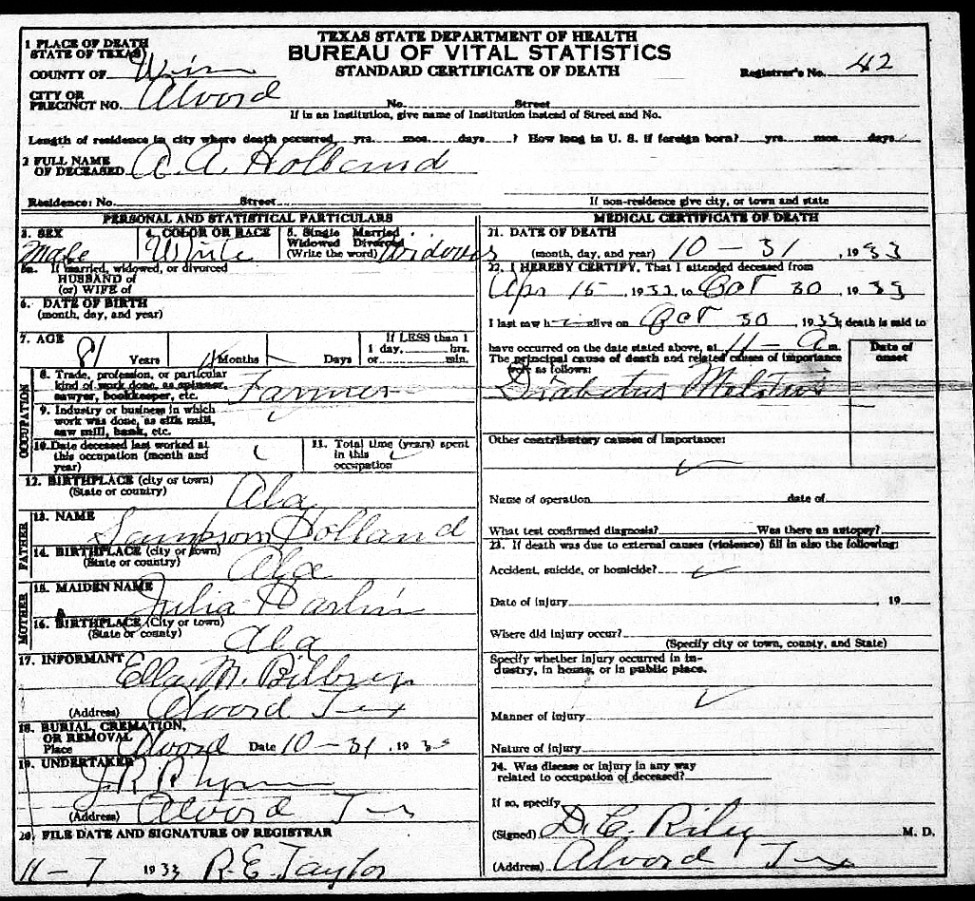 TEXAS STATE DEPARTMENT OF HEALTH
BUREAU OF VITAL STATISTICS
STANDARD CERTIFICATE OF DEATH
Registrar's No. 42
1 PLACE OF DEATH
STATE OF TEXAS
COUNTY OF Wise
CITY OR
PRECINCT NO. Alvord No. Street
If in an Institution, give name of Institution instead of Street and No.
Length of residence in city where death occurred yrs. mos. days ? How long in U. S. if foreign born? yrs. mos. days
2 FULL NAME
OF DECEASED A. A. Holland
Residence: No. Street If non-residence give city, or town and state
PERSONAL AND STATISTICAL PARTICULARS
3. SEX Male
4. COLOR OR RACE White
5. Single Married
Widowed Divorced
(Write the word)
5a. If married, widowed, or divorced
HUSBAND of
(or) WIFE of
6. DATE OF BIRTH
(month, day, and year)
7. AGE 81 Years Months Days
If LESS than 1
1 day, hrs.
or min.
OCCUPATION
8. Trade, profession, or particular
kind of work done, as spinner,
sawyer, bookkeeper, etc. Farmer
9. Industry or business in which
work was done, as silk mill,
saw mill, bank, etc.
10. Date deceased last worked at
this occupation (month and
year)
11. Total time (years) spent
in this
occupation
12. BIRTHPLACE (city or town)
(State or country) Ala
FATHER
13. NAME Sampson Holland
14. BIRTHPLACE (city or town)
(State or country) Ala
MOTHER
15. MAIDEN NAME Julia
16. BIRTHPLACE (City or town)
(State or county) Ala
17. INFORMANT Ella M.
(Address) Alvord Tex
18. BURIAL, CREMATION,
OR REMOVAL
Place Alvord Date 10-31, 1933
19. UNDERTAKER
J.R.
(Address) Alvord Tex
20. FILE DATE AND SIGNATURE OF REGISTRAR
11-7 1933 R.E. Taylor
MEDICAL CERTIFICATE OF DEATH
21. DATE OF DEATH
(month, day, and year) 10-31, 1933
22. I HEREBY CERTIFY, That I attended deceased from
Apr 15, 1933, to Oct 30, 1933
I last saw h alive on Oct 30, 1933; death is said to
have occurred on the date stated above, at 11- A m.
The principal cause of death and related causes of importance
were as follows:
Date of
onset
Other contributory causes of importance:
Name of operation date of
What test confirmed diagnosis? Was there an autopsy?
23. If death was due to external causes (violence) fill in also the following:
Accident, suicide, or homicide?
Date of injury , 19
Where did injury occur?
(Specify city or town, county, and State)
Specify whether injury occurred in in-
dustry, in home, or in public place.
Manner of injury
Nature of injury
24. Was disease or injury in any way
related to occupation of deceased?
If so, specify
(Signed) D. C. Riley M. D.
(Address) Alvord Tex